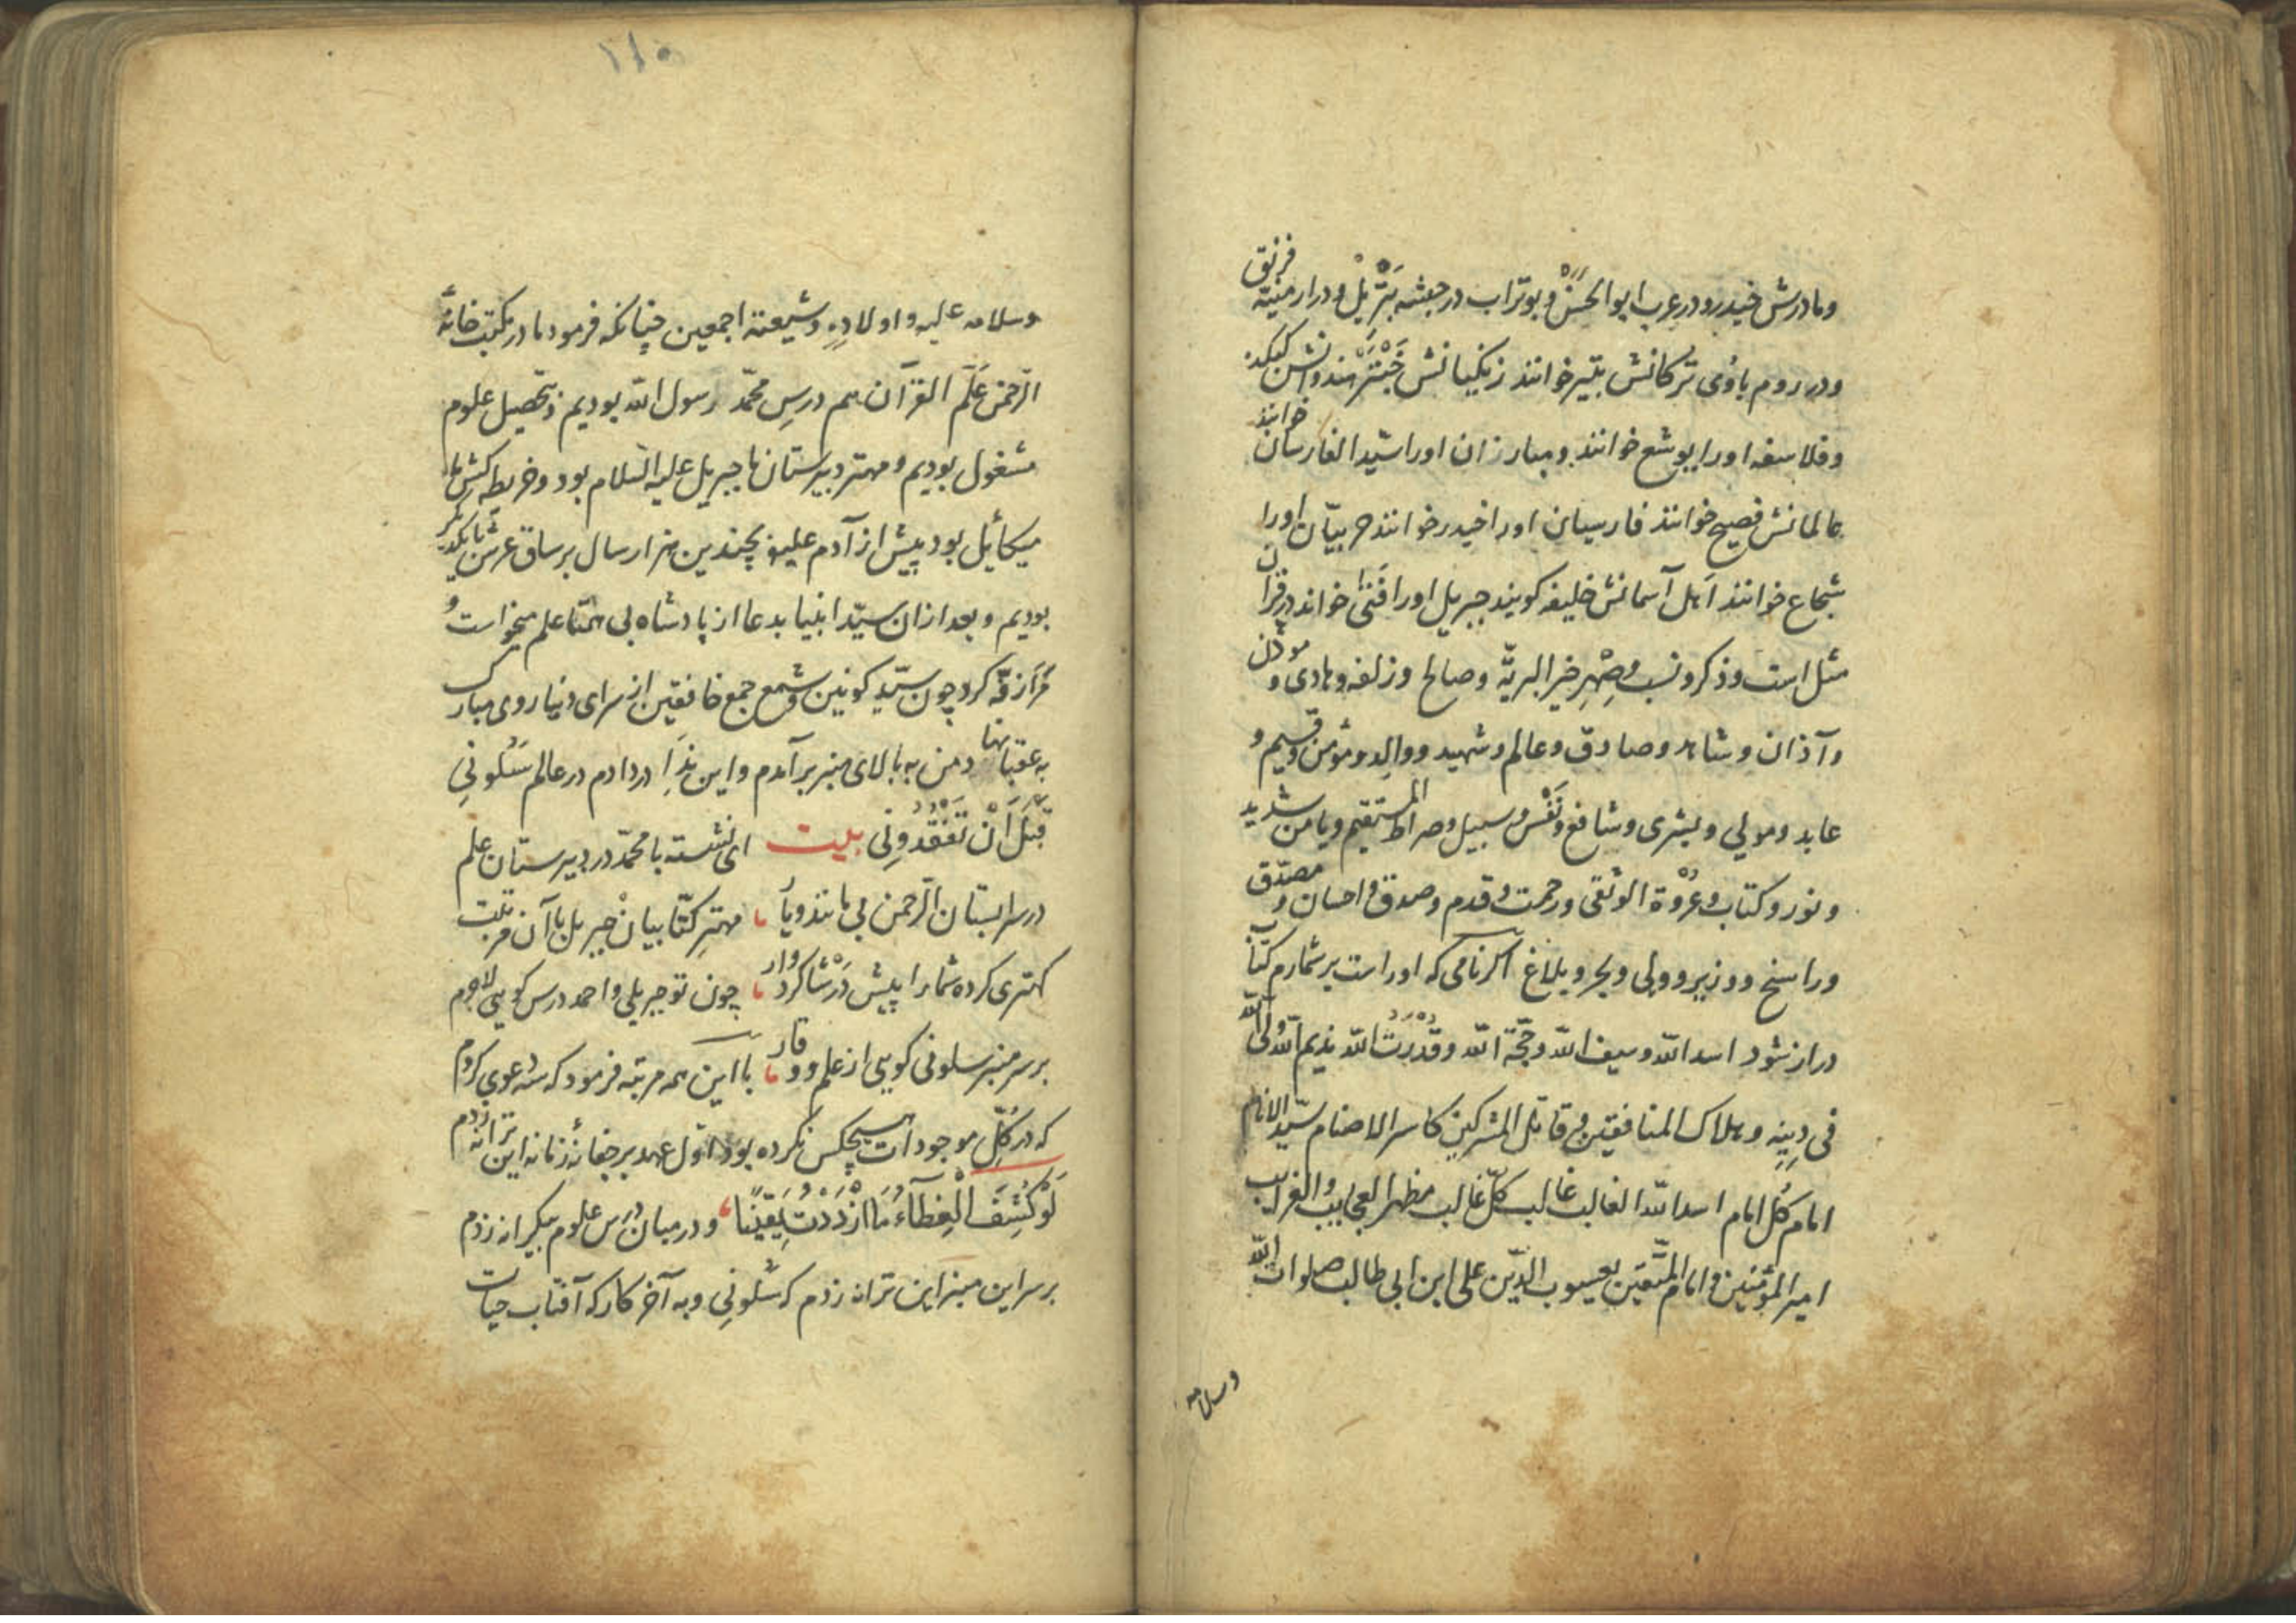 ومادرش حیدر و در عرب ابوالحسن و بوتراب در حبشه بَتْریل و در ارمنیّه فرنق
و در روم باؤی ترکانش بتیر خوانند زنکیانش خَبْتَر هندوانش کبکند
و فلاسفه اورا یوشع خوانند و مبارزان اورا سیّد الفارسان خوانند
عالمانش فصیح خوانند فارسیان اورا خیدر خوانند حربیّان اورا
شجاع خوانند اهل آسمانش خلیفه کویند جبریل اورا فَتی خواند در قرآن
مثل است و ذکر و نسب و صِهْرِ خیر البریّه و صالح و زلفه و هادی و موذن
و آذان و شاهد و صادق و عالم و شهید و والِد و مؤمن و قسیم و
عابد و مولی و بشری و شافع و نَفْس و سبیل و صراط المستقیم و یا من شدید
و نور و کتاب و عُرْوة الوثقی و رحمت و قدم و صدق و احسان و مصدّق
و راسخ و وزیر و ولی و بحر و بلاغ اکر نامی که اوراست بر شمارم کتاب
دراز شود اسد الله و سیف الله و حجّة الله و قُدْرَتُ الله ندیم الله ولی الله
فی دِینِهِ و هلاک المنافقین و قاتل المشرکین کاسر الاصنام سیّد الانام
امام کُل امام اسد الله الغالب غالب کلّ غالب مظهر العجایب و الغرایب
امیر المؤمنین و امام المتّقین یعسوب الدّین علی ابن ابی طالب صلوات الله
وسلامه
۱۱۰
وسلامه علیه و اولادِهِ و شیعته اجمعین چنانکه فرمود ما در مکتب خانهٔ
الرّحمن عَلَّم القرآن هم درسِ محمّد رسول الله بودیم و تحصیل علوم
مشغول بودیم و مهتر دبیرستان ما جبریل علیه السّلام بود و خریطه کش ما
میکائیل بود پیش از آدم علیه بچندین هزار سال بر ساق عرش با یکدیکر
بودیم و بعد از ان سیّد انبیا بدعا از پادشاه بی همتا علم میخواست و
مرا زقّه کرد چون سیّد کونین و شمع جمع خافقین از سرای دنیا روی مبارک
به عقبا نهاد من به بالای منبر برآمدم و این نِدَا در دادم در عالم سَلُونِی
قَبْلَ اَنْ تَفْقُدُونِی بیت ای نشسته با محمّد در دبیرستان علم
در سرابستان الرّحمن بی مانند و یار مهترِ کتّابیان جبریل با آن مرتبت
کهتری کرده شما را پیش دَرْ شاکردوار چون تو جبریلی و احمد درس کویی لاجرم
بر سر منبر سلونی کویی از علم و وقار با این همه مرتبه فرمود که سه دعوی کردم
که در کُلّ موجودات هیچکس نکرده بود اوّل عهد بر چغانهٔ زمانه این ترانه زدم
لَوْ کُشِفَ الْغِطَآءُ مَا ازْدَدْتُ یَقِیْنًا و در میان درس علوم بیکرانه زدم
بر سر این منبر این ترانه زدم که سَلُونِی و به آخر کار که آفتاب حیات